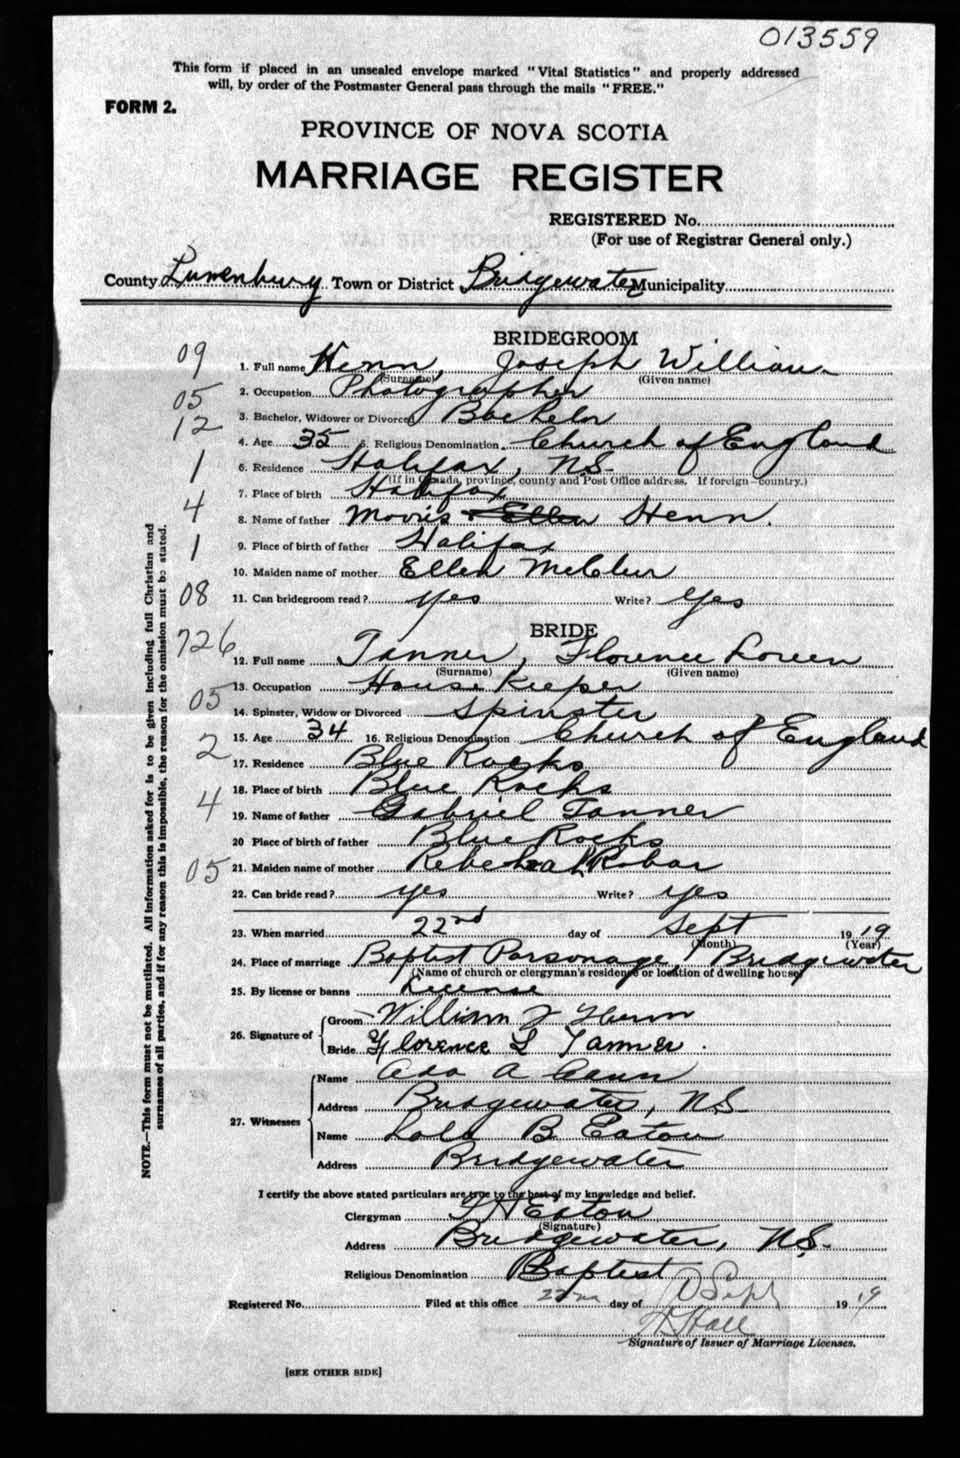 013559
This form if placed in an unsealed envelope marked "Vital Statistics" and properly addressed
will, by order of the Postmaster General pass through the mails "FREE."
FORM 2.
PROVINCE OF NOVA SCOTIA
MARRIAGE REGISTER
REGISTERED No.
(For use of Registrar General only.)
County Lunenburg Town or District Bridgewater Municipality
BRIDEGROOM
09
1. Full name Henn, Joseph William
(Surname) (Given name)
2. Occupation Photographer
05
3. Bachelor, Widower or Divorced Bachelor
12
4. Age 35 5. Religious Denomination Church of England
6. Residence Halifax, N.S.
1
(If in Canada, province, county and Post Office address. If foreign—country.)
7. Place of birth Halifax
4
8. Name of father Morris Ellen Henn.
9. Place of birth of father Halifax
1
10. Maiden name of mother Ellen
11. Can bridegroom read? yes Write? yes
08
BRIDE
726
12. Full name Tanner, Florence Loreen
(Surname) (Given name)
13. Occupation House Keeper
05
14. Spinster, Widow or Divorced Spinster
15. Age 34 16. Religious Denomination Church of England
2
17. Residence Blue Rocks
18. Place of birth Blue Rocks
4
19. Name of father Gabriel Tanner
20 Place of birth of father Blue Rocks
05
21. Maiden name of mother Rebeccah Robar
22. Can bride read? yes Write? yes
23. When married 22nd day of Sept 19 19
(Month) (Year)
24. Place of marriage Baptist Parsonage, Bridgewater
(Name of church or clergyman's residence or location of dwelling house)
25. By license or banns License
26. Signature of Groom William J Henn
Bride Florence L Tanner.
27. Witnesses Name Ada A
Address Bridgewater, N.S.
Name Lola B Eaton
Address Bridgewater
I certify the above stated particulars are true to the best of my knowledge and belief.
Clergyman Eaton
(Signature)
Address Bridgewater, N.S.
Religious Denomination Baptist
Registered No. Filed at this office 22nd day of Sept 19 19
Hall
Signature of Issuer of Marriage Licenses.
[SEE OTHER SIDE]
NOTE.—This form must not be mutilated. All information asked for is to be given including full Christian and
surnames of all parties, and if for any reason this is impossible, the reason for the omission must be stated.